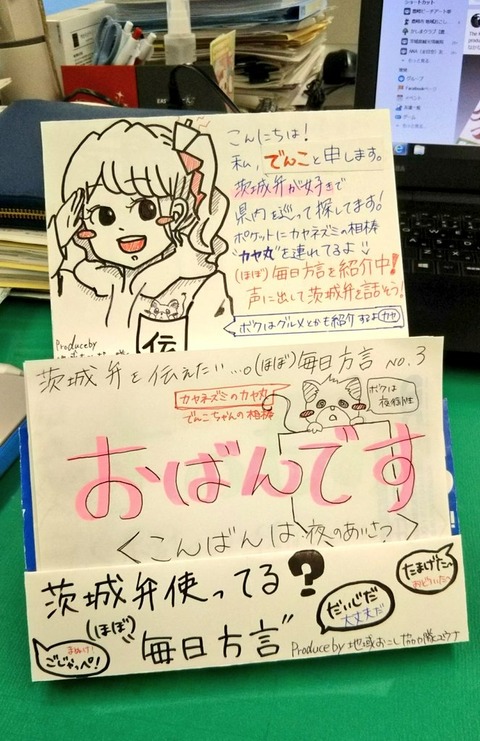 こんにちは！
私，でんこと申します。
茨城弁が好きで
県内を巡って探してます！
ポケットにカヤネズミの相棒
"カヤ丸"を連れてるよ!!
(ほぼ)毎日方言を紹介中！
声に出して茨城弁を話そう！
ボクはグルメとかも紹介するよ(カヤ)
伝
Produce by
茨城弁を伝えたい…。(ほぼ)毎日方言 NO.3
カヤネズミのカヤ丸
でんこちゃんの相棒
ボクは
夜行性
おばんです
＜こんばんは・夜のあいさつ＞
茨城弁使ってる？
(ほぼ)
毎日方言"
ごじゃっぺ！
だいじだ
大丈夫だ
たまげた〜
おどろいた〜
Produce by 地域おこし協力隊ユウナ
グループ
Facebookページ
イベント
ゲーム